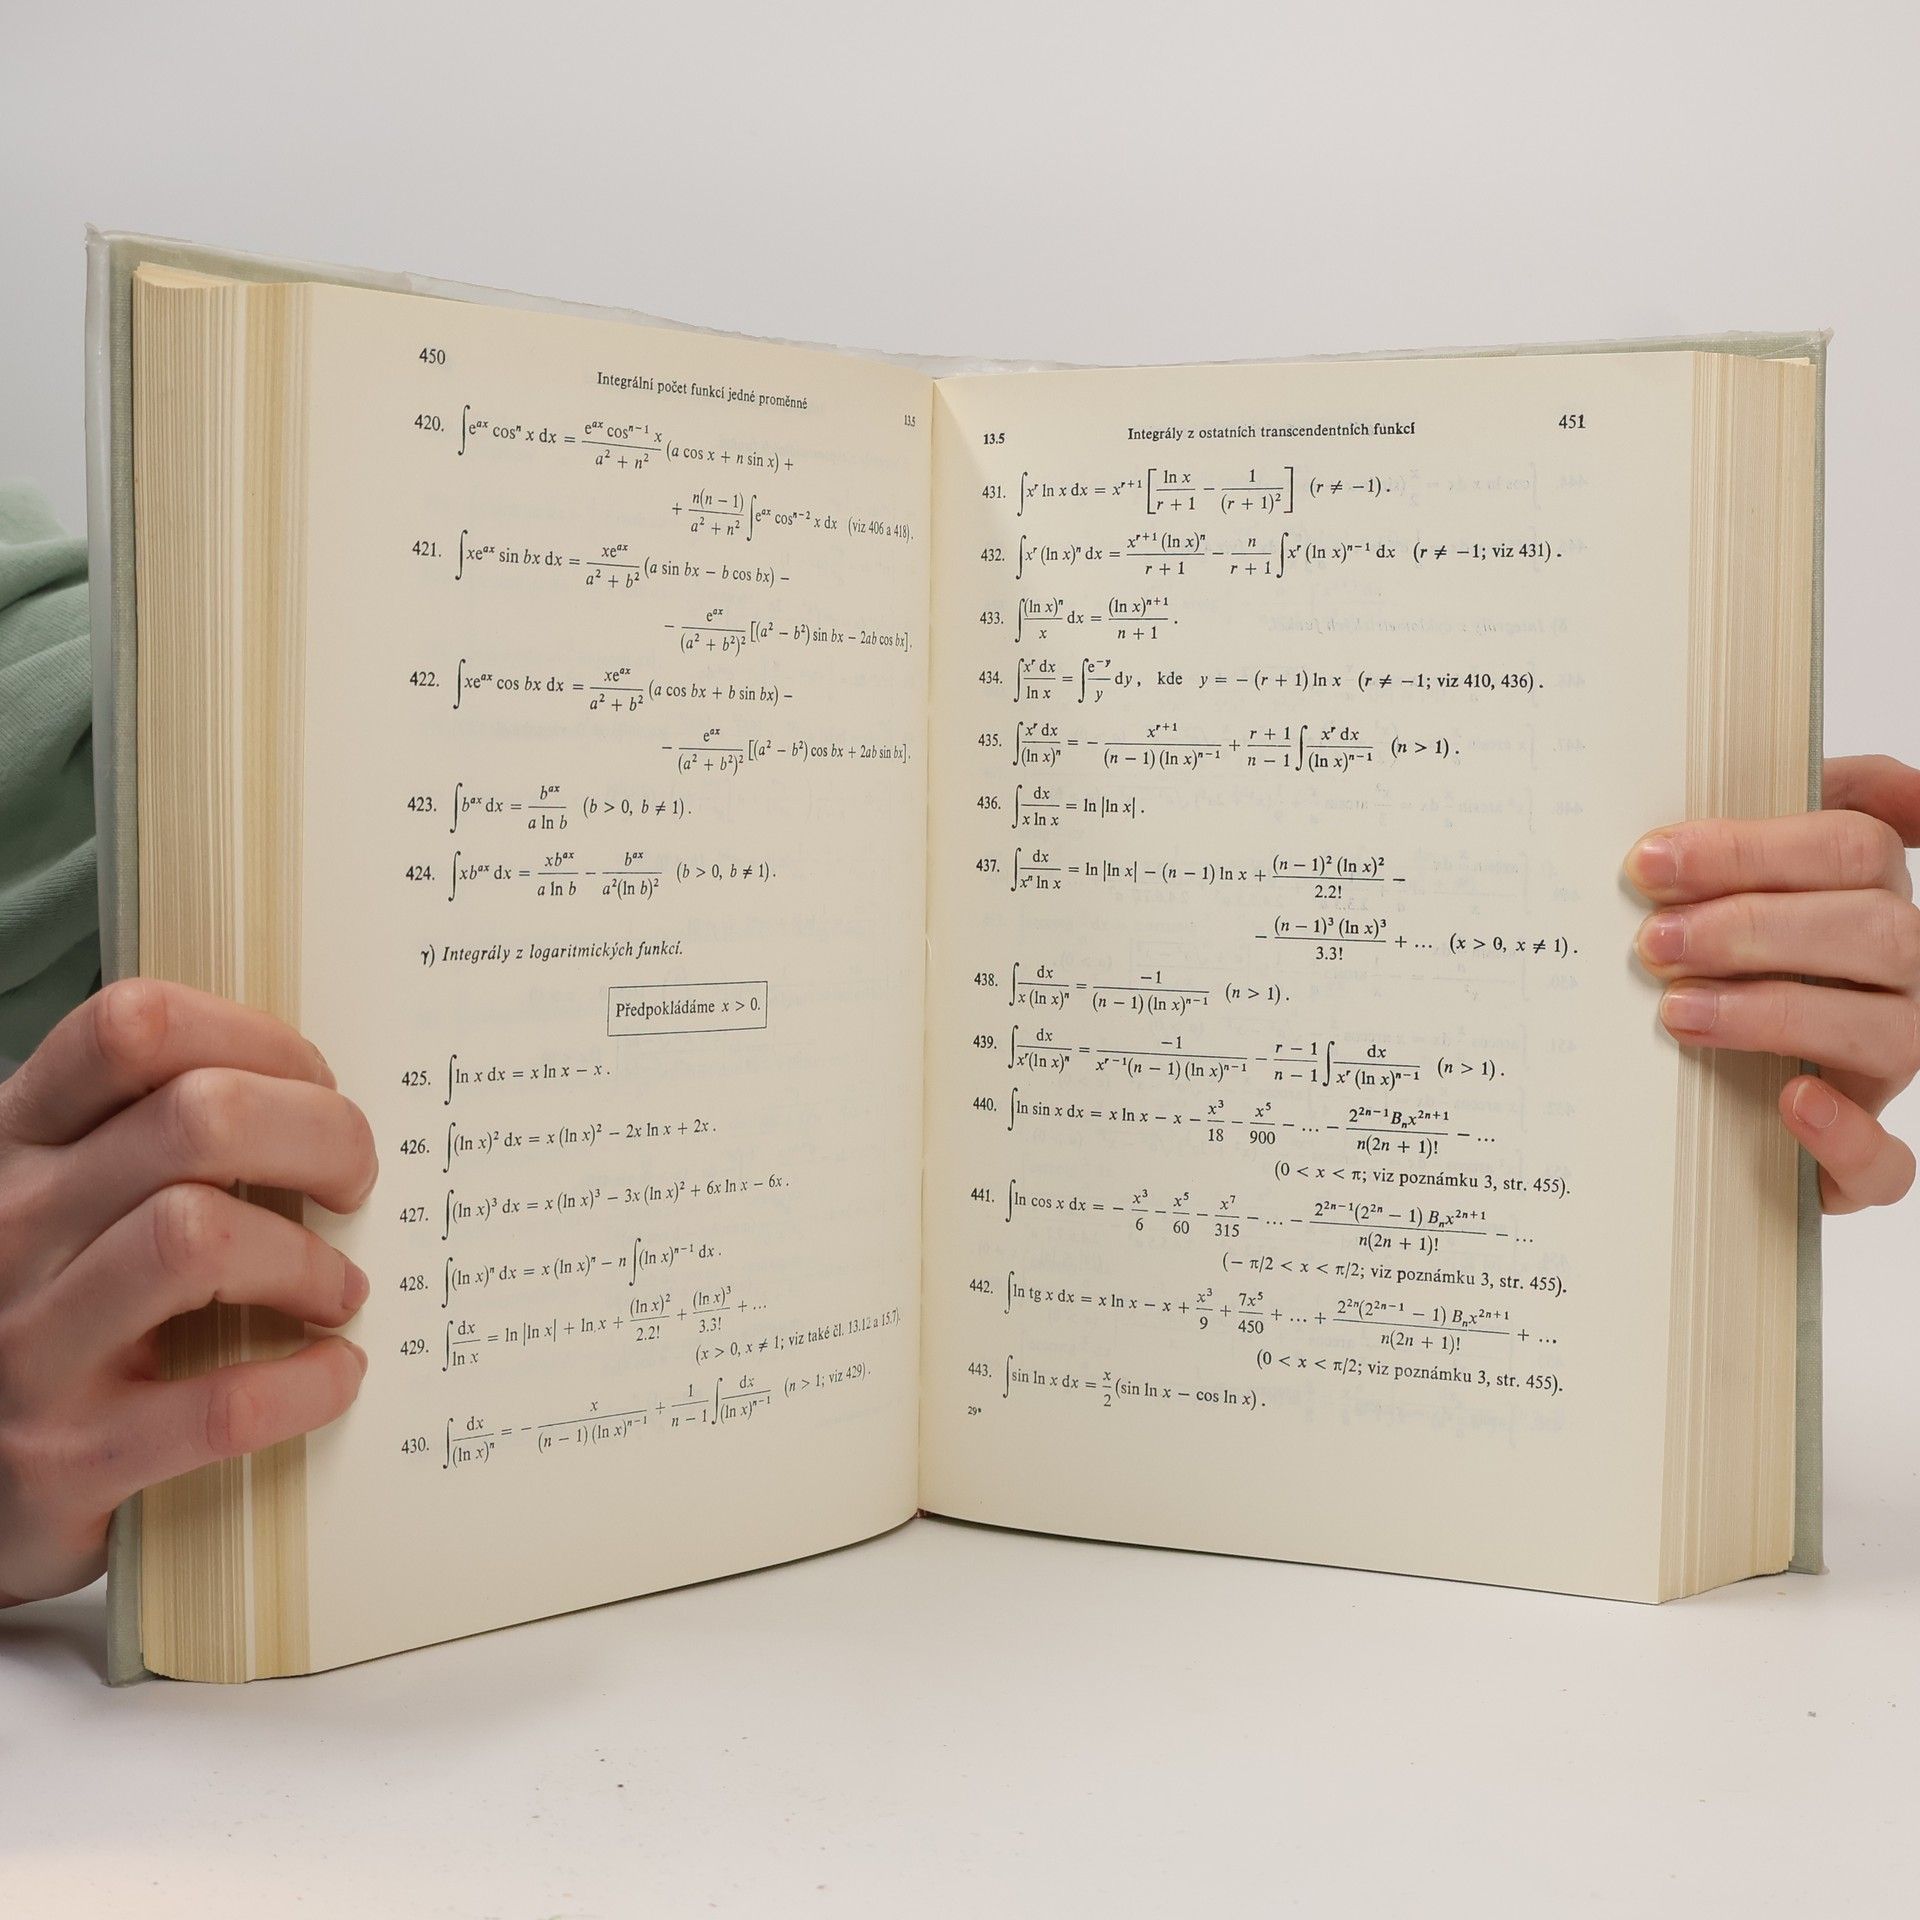 450
Integrální počet funkcí jedné proměnné
13.5
420. ∫e^{ax} cos^n x dx = \frac{e^{ax} cos^{n−1} x}{a² + n²} (a cos x + n sin x) +
+ \frac{n(n − 1)}{a² + n²} ∫e^{ax} cos^{n−2} x dx (viz 406 a 418).
421. ∫xe^{ax} sin bx dx = \frac{xe^{ax}}{a² + b²} (a sin bx − b cos bx) −
− \frac{e^{ax}}{(a² + b²)²} [(a² − b²) sin bx − 2ab cos bx].
422. ∫xe^{ax} cos bx dx = \frac{xe^{ax}}{a² + b²} (a cos bx + b sin bx) −
− \frac{e^{ax}}{(a² + b²)²} [(a² − b²) cos bx + 2ab sin bx].
423. ∫b^{ax} dx = \frac{b^{ax}}{a ln b} (b > 0, b ≠ 1).
424. ∫xb^{ax} dx = \frac{xb^{ax}}{a ln b} − \frac{b^{ax}}{a²(ln b)²} (b > 0, b ≠ 1).
γ) Integrály z logaritmických funkcí.
Předpokládáme x > 0.
425. ∫ln x dx = x ln x − x.
426. ∫(ln x)² dx = x (ln x)² − 2x ln x + 2x.
427. ∫(ln x)³ dx = x (ln x)³ − 3x (ln x)² + 6x ln x − 6x.
428. ∫(ln x)^n dx = x (ln x)^n − n ∫(ln x)^{n−1} dx.
429. ∫\frac{dx}{ln x} = ln |ln x| + ln x + \frac{(ln x)²}{2.2!} + \frac{(ln x)³}{3.3!} + ...
(x > 0, x ≠ 1; viz také čl. 13.12 a 15.7).
430. ∫\frac{dx}{(ln x)^n} = − \frac{x}{(n − 1) (ln x)^{n−1}} + \frac{1}{n − 1} ∫\frac{dx}{(ln x)^{n−1}} (n > 1; viz 429).
13.5 Integrály z ostatních transcendentních funkcí 451
431. ∫x^r ln x dx = x^{r+1} [\frac{ln x}{r + 1} − \frac{1}{(r + 1)²}] (r ≠ −1).
432. ∫x^r (ln x)^n dx = \frac{x^{r+1} (ln x)^n}{r + 1} − \frac{n}{r + 1} ∫x^r (ln x)^{n−1} dx (r ≠ −1; viz 431).
433. ∫\frac{(ln x)^n}{x} dx = \frac{(ln x)^{n+1}}{n + 1}.
434. ∫\frac{x^r dx}{ln x} = ∫\frac{e^{−y}}{y} dy, kde y = − (r + 1) ln x (r ≠ −1; viz 410, 436).
435. ∫\frac{x^r dx}{(ln x)^n} = − \frac{x^{r+1}}{(n − 1) (ln x)^{n−1}} + \frac{r + 1}{n − 1} ∫\frac{x^r dx}{(ln x)^{n−1}} (n > 1).
436. ∫\frac{dx}{x ln x} = ln |ln x|.
437. ∫\frac{dx}{x^n ln x} = ln |ln x| − (n − 1) ln x + \frac{(n − 1)² (ln x)²}{2.2!} −
− \frac{(n − 1)³ (ln x)³}{3.3!} + ... (x > 0, x ≠ 1).
438. ∫\frac{dx}{x (ln x)^n} = \frac{−1}{(n − 1) (ln x)^{n−1}} (n > 1).
439. ∫\frac{dx}{x^r (ln x)^n} = \frac{−1}{x^{r−1}(n − 1) (ln x)^{n−1}} − \frac{r − 1}{n − 1} ∫\frac{dx}{x^r (ln x)^{n−1}} (n > 1).
440. ∫ln sin x dx = x ln x − x − \frac{x³}{18} − \frac{x⁵}{900} − ... − \frac{2^{2n−1} B_n x^{2n+1}}{n(2n + 1)!} − ...
(0 < x < π; viz poznámku 3, str. 455).
441. ∫ln cos x dx = − \frac{x³}{6} − \frac{x⁵}{60} − \frac{x⁷}{315} − ... − \frac{2^{2n−1}(2^{2n} − 1) B_n x^{2n+1}}{n(2n + 1)!} − ...
(− π/2 < x < π/2; viz poznámku 3, str. 455).
442. ∫ln tg x dx = x ln x − x + \frac{x³}{9} + \frac{7x⁵}{450} + ... + \frac{2^{2n}(2^{2n−1} − 1) B_n x^{2n+1}}{n(2n + 1)!} + ...
(0 < x < π/2; viz poznámku 3, str. 455).
443. ∫sin ln x dx = \frac{x}{2} (sin ln x − cos ln x).
29*